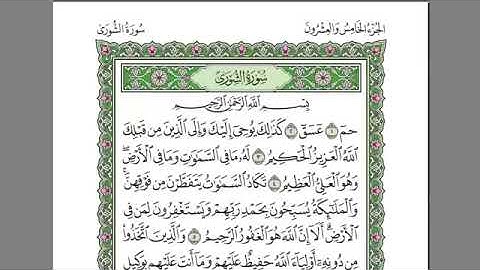 الجزء الخامس والعشرون سورة الشورى
سورة الشورى
بسم الله الرحمن الرحيم
حمٓ ١ عٓسٓقٓ ٢ كَذَٰلِكَ يُوحِىٓ إِلَيْكَ وَإِلَى ٱلَّذِينَ مِن قَبْلِكَ
ٱللَّهُ ٱلْعَزِيزُ ٱلْحَكِيمُ ٣ لَهُۥ مَا فِى ٱلسَّمَٰوَٰتِ وَمَا فِى ٱلْأَرْضِ ۖ
وَهُوَ ٱلْعَلِىُّ ٱلْعَظِيمُ ٤ تَكَادُ ٱلسَّمَٰوَٰتُ يَتَفَطَّرْنَ مِن فَوْقِهِنَّ ۚ
وَٱلْمَلَٰٓئِكَةُ يُسَبِّحُونَ بِحَمْدِ رَبِّهِمْ وَيَسْتَغْفِرُونَ لِمَن فِى
ٱلْأَرْضِ ۗ أَلَآ إِنَّ ٱللَّهَ هُوَ ٱلْغَفُورُ ٱلرَّحِيمُ ٥ وَٱلَّذِينَ ٱتَّخَذُوا۟
مِن دُونِهِۦٓ أَوْلِيَآءَ ٱللَّهُ حَفِيظٌ عَلَيْهِمْ وَمَآ أَنتَ عَلَيْهِم بِوَكِيلٍ